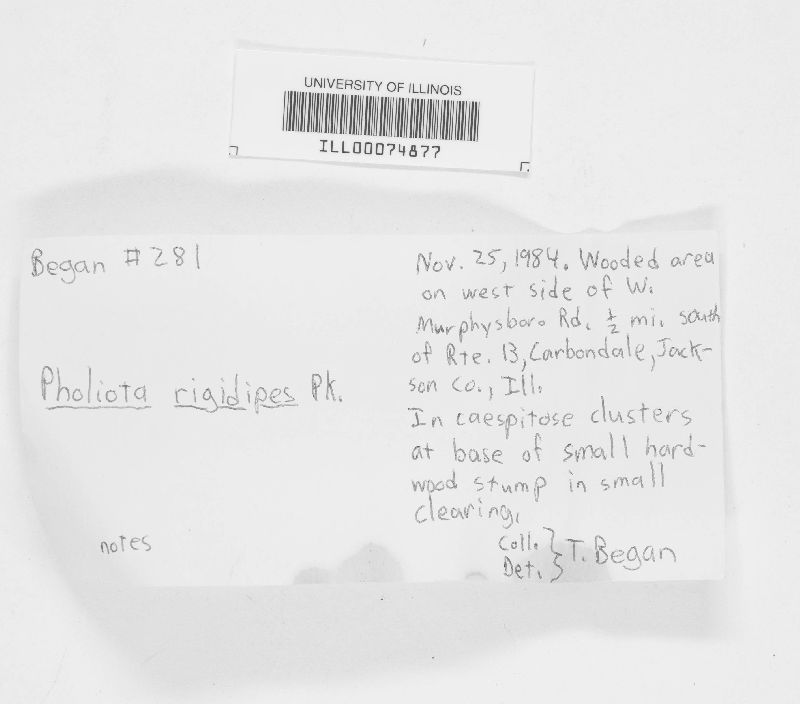 UNIVERSITY OF ILLINOIS
ILL00074877
Began # 281
Pholiota rigidipes Pk.
notes
Nov. 25, 1984. Wooded area
on west side of W.
Murphysboro Rd. ½ mi. south
of Rte. 13, Carbondale, Jack-
son Co., Ill.
In caespitose clusters
at base of small hard-
wood stump in small
clearing.
Coll. } T. Began
Det.